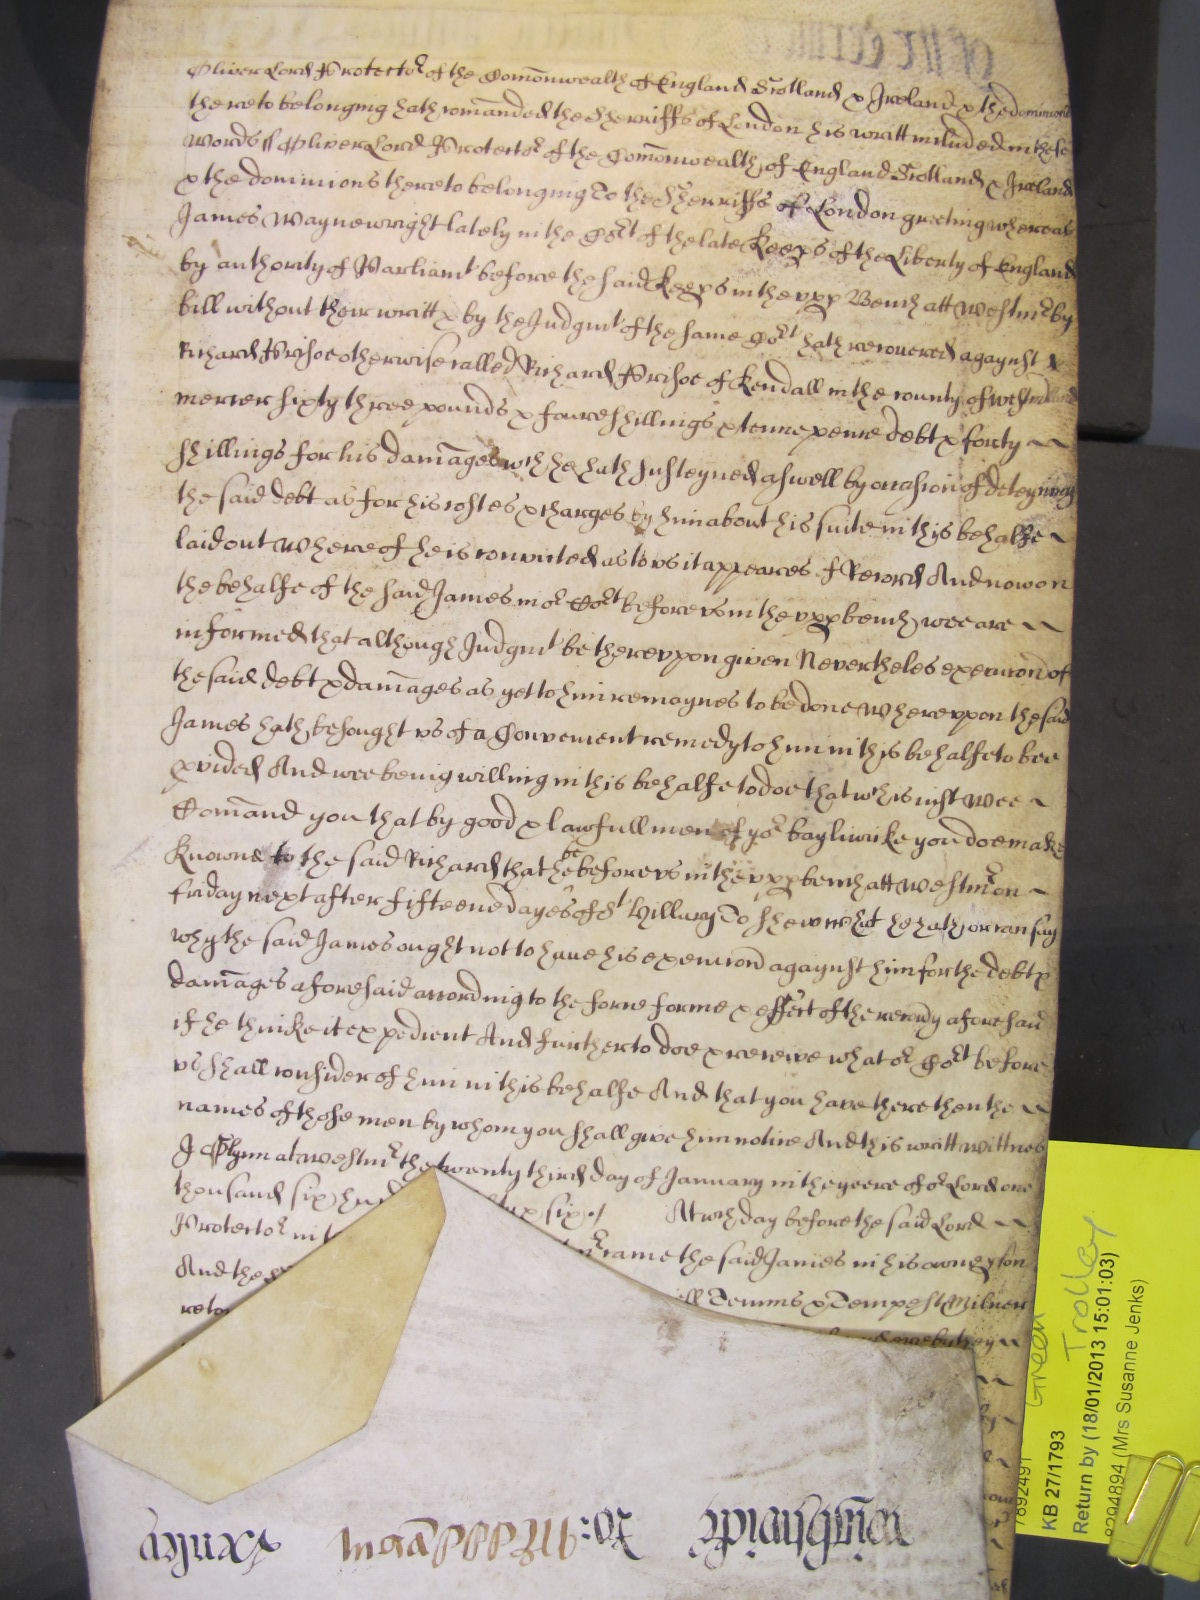 Oliver Lord Protector of the Comonwealth of England Scotland & Ireland & the dominions
thereto belonging hath comanded the Sherriffs of London his writt included in these
words ss Oliver Lord Protector of the Comonwealth of England Scotland & Ireland
& the dominions thereto belonging To the Sherriffs of London greeting whereas
James Waynewright lately in the Cort of the late Keeps of the Liberty of England
by authority of Parliamt before the said Keeps in the vpp Bench att Westmr by
bill without their writt & by the Judgmt of the same Cort hath recouered agaynst
Richard Prisoe otherwise called Richard Prisoe of Kendall in the county of
mercer sixty three pounds & foure shillings & tenne pence debt & forty
shillings for his damages wch he hath susteyned aswell by occasion of deteyning
the said debt as for his costes & charges by him about his suite in this behalfe
laid out Whereof he is convicted as to vs it appeares of Record And now on
the behalfe of the said James in or Cort before vs in the vpp bench wee are
informed that although Judgmt be therevppon given Nevertheles execucon of
the said debt & damages as yet to him remaynes to be done Wherevppon the said
James hath besought vs of a Convenient remedy to him in this behalfe to bee
pvided And wee being willing in this behalfe to doe that wch is iust Wee
Comand you that by good & lawfull men of yor bayliwike you doe make
Knowne to the said Richard that he be before vs in the vpp bench att Westmr on
friday next after fifteene dayes of St Hillary To shew what he hath or can say
why the said James ought not to haue his execucon agaynst him for the debt &
damages aforesaid according to the force forme & effect of the recovy aforesaid
if he thinke it expedient And further to doe & receive what or Cort before
vs shall consider of him in this behalfe And that you have there then the
names of those men by whom you shall give him notice And this writt wittnes
J Glynn at Westmr the twenty third day of January in the yeere of or Lord one
thousand six six At wch day before the said Lord
Protector in came the said James in his owne pson
And the Temms & Tempest Milner
KB 27/1793
Green Trolley
Return by (18/01/2013 15:01:03)
8294894 (Mrs Susanne Jenks)